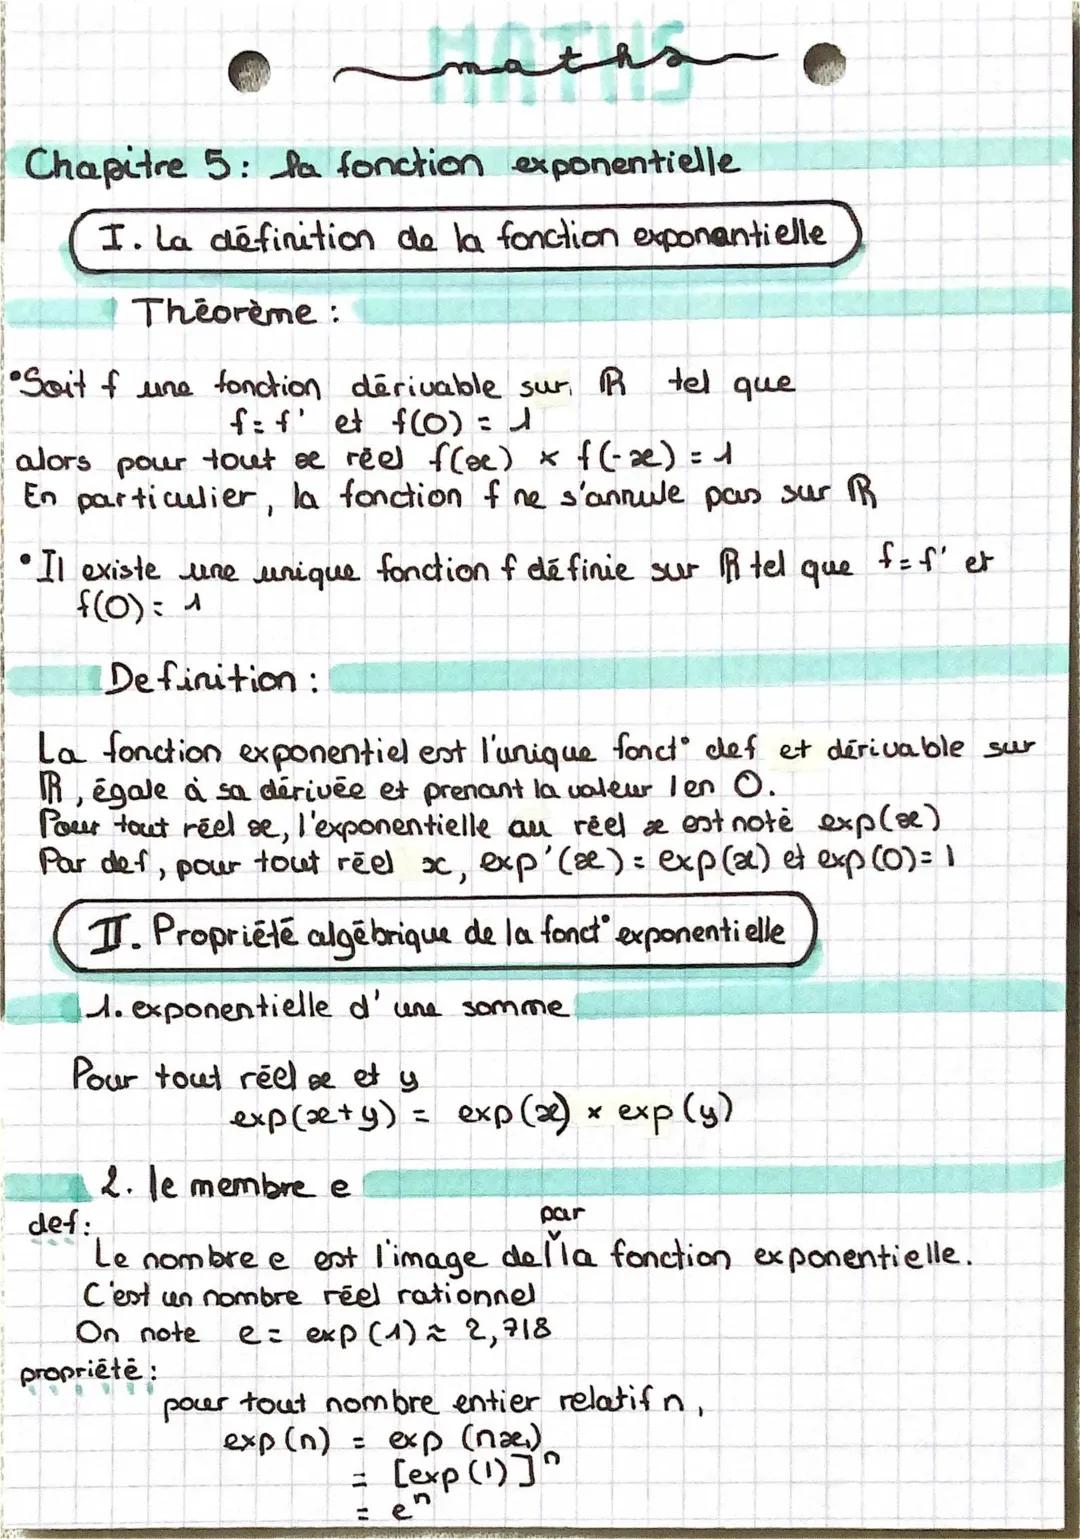 MATHS
maths
Chapitre 5: la fonction exponentielle
I. La définition de la fonction exponentielle
Théorème :
•Soit f une fonction dérivable sur ℝ tel que
f = f' et f(0) = 1
alors pour tout x réel f(x) × f(-x) = 1
En particulier, la fonction f ne s'annule pas sur ℝ
•Il existe une unique fonction f définie sur ℝ tel que f = f' et
f(0) = 1
Definition :
La fonction exponentiel est l'unique fonct° def et dérivable sur
ℝ, égale à sa dérivée et prenant la valeur 1 en 0.
Pour tout réel x, l'exponentielle au réel x est noté exp(x)
Par def, pour tout réel x, exp'(x) = exp(x) et exp(0) = 1
II. Propriété algébrique de la fonct° exponentielle
1. exponentielle d'une somme
Pour tout réel x et y
exp(x+y) = exp(x) × exp(y)
2. le membre e
def :
Le nombre e est l'image de 1 par la fonction exponentielle.
C'est un nombre réel rationnel
On note e = exp(1) ≈ 2,718
propriété :
pour tout nombre entier relatif n,
exp(n) = exp(nx1)
= [exp(1)]ⁿ
= eⁿ